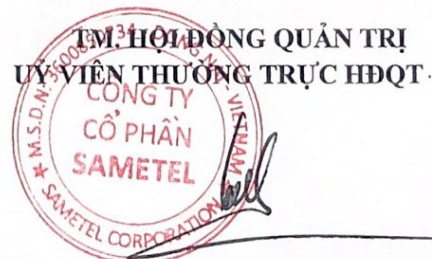 TM. HỘI ĐỒNG QUẢN TRỊ
UỶ VIÊN THƯỜNG TRỰC HĐQT
CÔNG TY
CỔ PHẦN
SAMETEL
SAMETEL CORPORATION